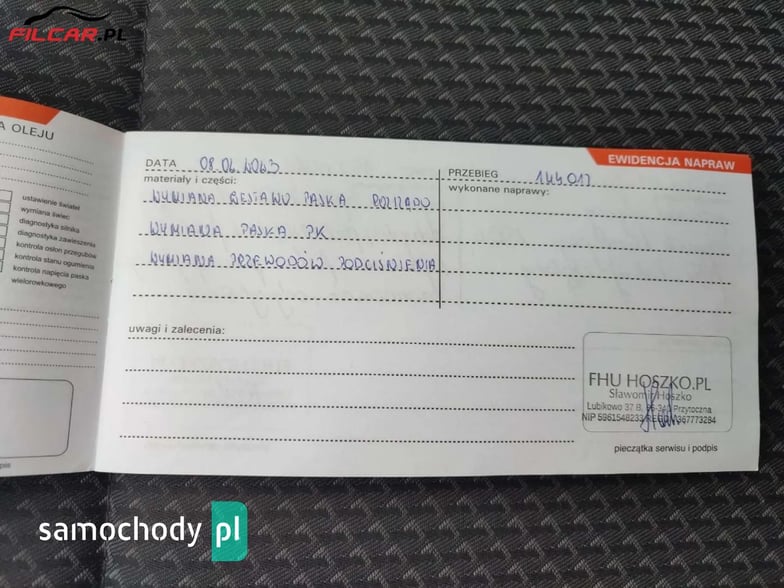 FILCAR.PL
A OLEJU
ustawienie świateł
wymiana świec
diagnostyka silnika
diagnostyka zawieszenia
kontrola osłon przegubów
kontrola stanu ogumienia
kontrola napięcia paska
wielorowkowego
EWIDENCJA NAPRAW
DATA 08.06.2023
PRZEBIEG 144017
materiały i części:
wykonane naprawy:
WYMIANA ZESTAWU PASKA ROZRZĄDU
WYMIANA PASKA PK
WYMIANA PRZEWODÓW PODCIŚNIENIA
uwagi i zalecenia:
FHU HOSZKO.PL
Sławomir Hoszko
Lubikowo 37 B, 66-340 Przytoczna
NIP 5961548233 367773284
pieczątka serwisu i podpis
samochody pl